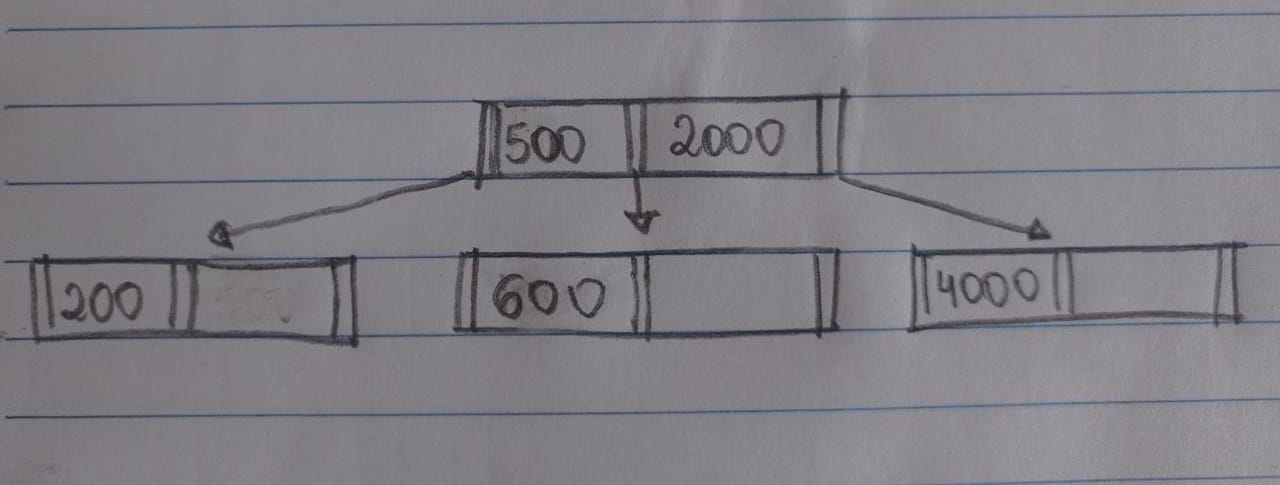 500 2000
200 600 4000